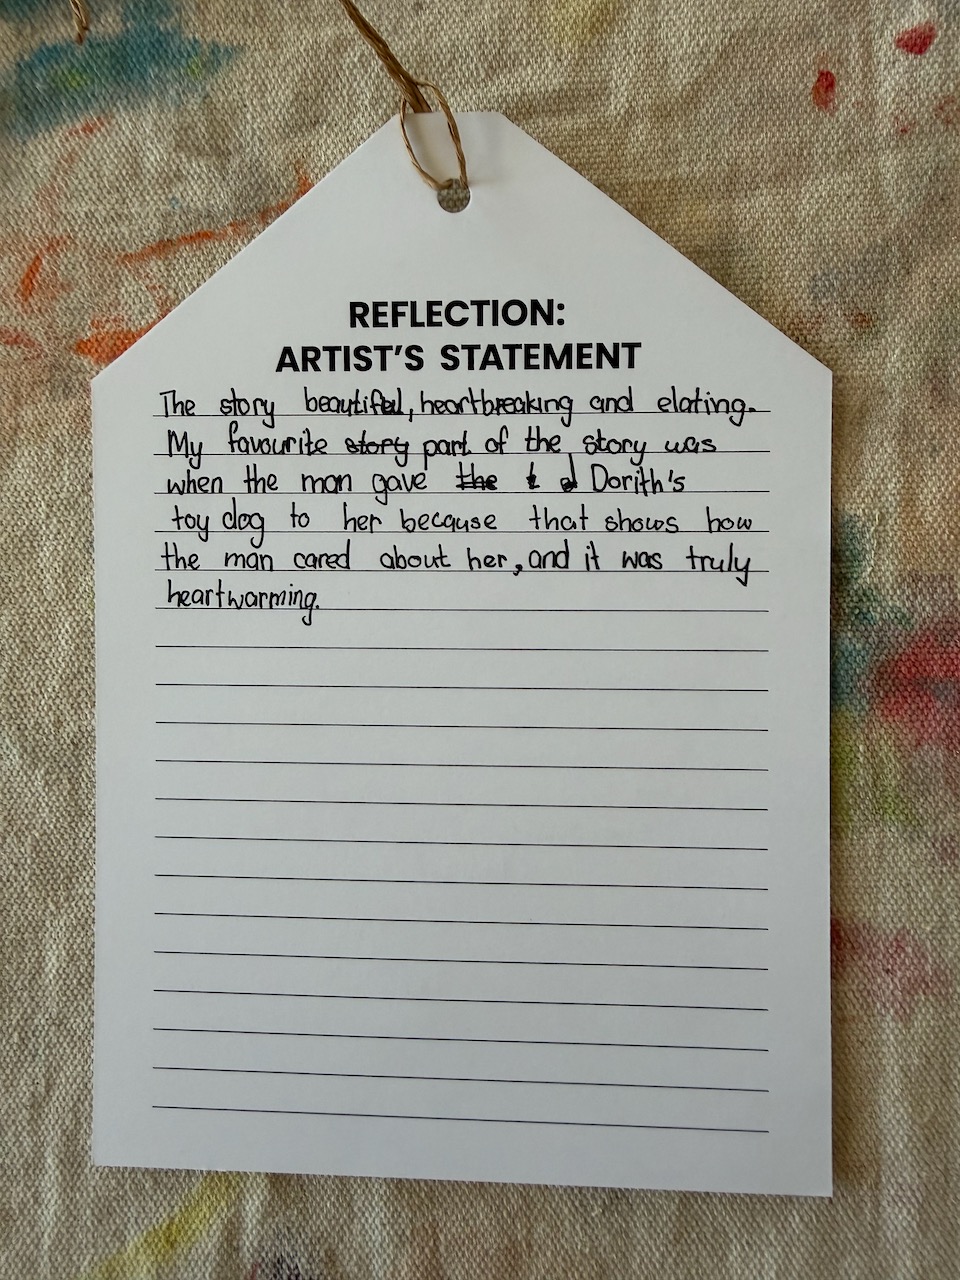 REFLECTION:
ARTIST'S STATEMENT
The story beautiful, heartbreaking and elating.
My favourite story part of the story was
when the man gave the t d Dorith's
toy dog to her because that shows how
the man cared about her, and it was truly
heartwarming.